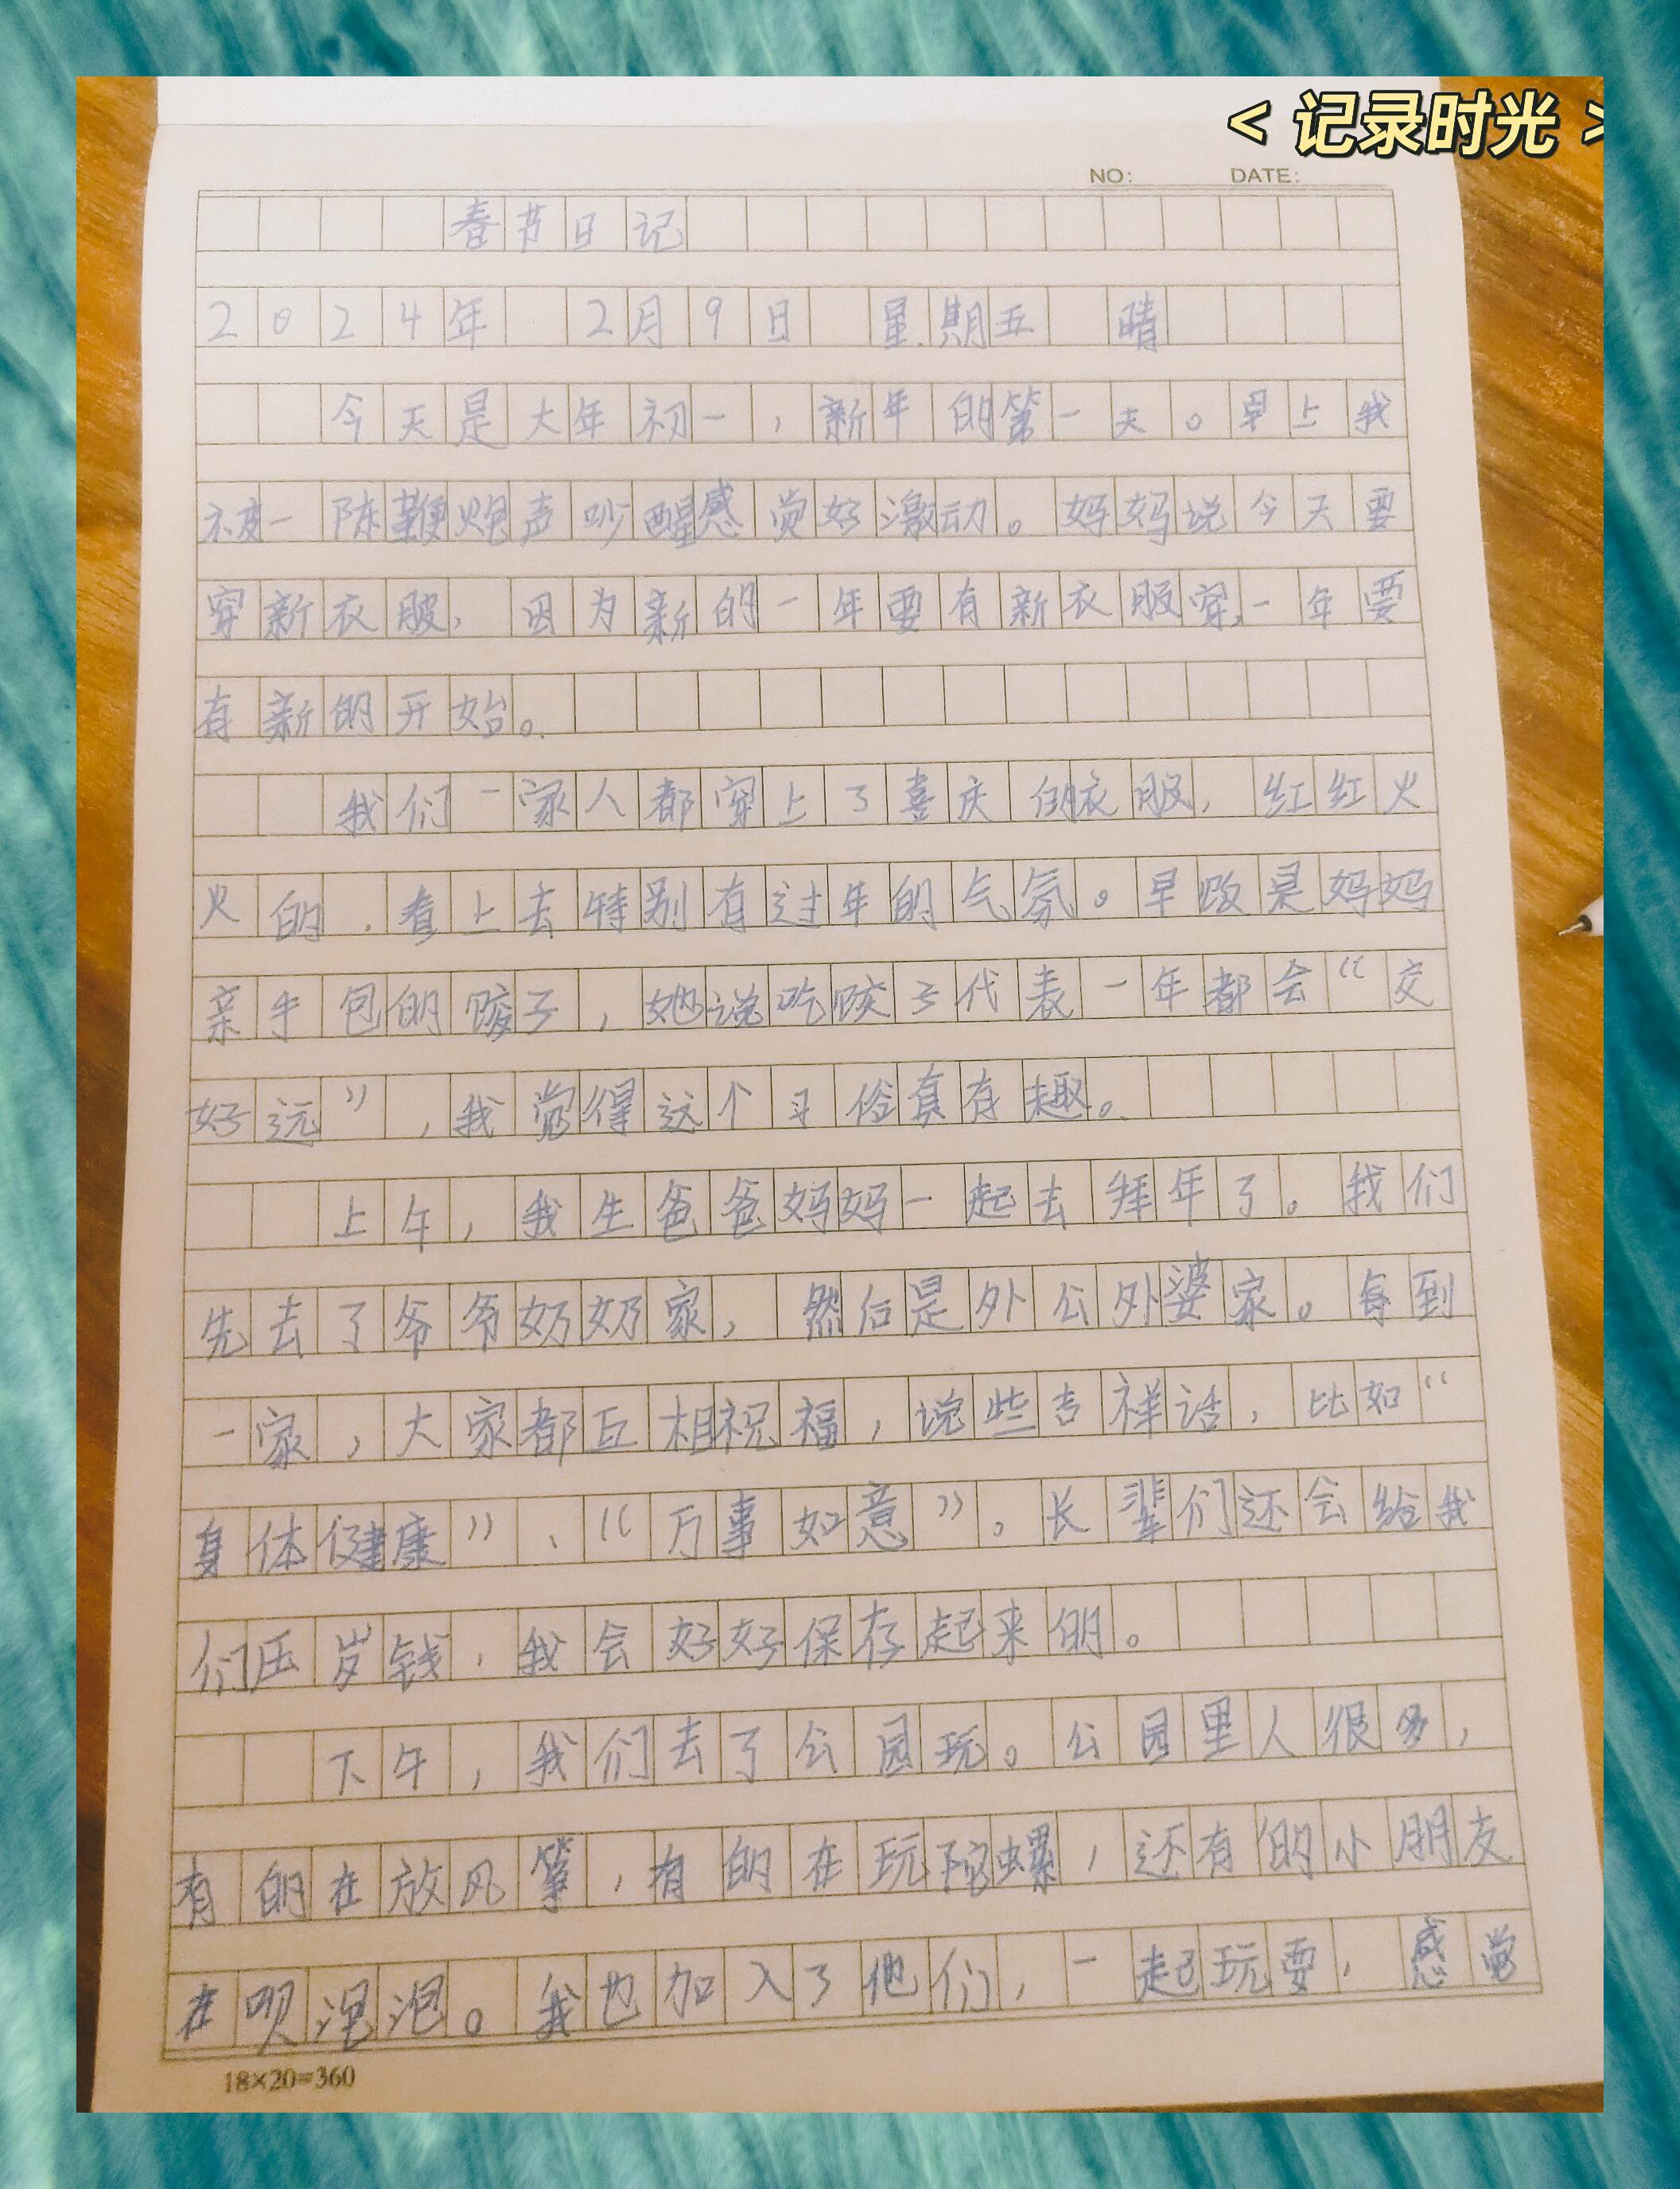 < 记录时光 >
NO: DATE:
春节日记
2024年 2月9日 星期五 晴
今天是大年初一,新年的第一天。早上我
被一阵鞭炮声吵醒感觉好激动。妈妈说今天要
穿新衣服,因为新的一年要有新衣服穿,一年要
有新的开始。
我们一家人都穿上了喜庆的衣服,红红火
火的.看上去特别有过年的气氛。早饭是妈妈
亲手包的饺子,她说吃饺子代表一年都会“交
好运”,我觉得这个习俗真有趣。
上午,我生爸爸妈妈一起去拜年了。我们
先去了爷爷奶奶家,然后是外公外婆家。每到
一家,大家都互相祝福,说些吉祥话,比如“
身体健康”、“万事如意”。长辈们还会给我
们压岁钱,我会好好保存起来的。
下午,我们去了公园玩。公园里人很多,
有的在放风筝,有的在玩陀螺,还有的小朋友
在吹泡泡。我也加入了他们,一起玩耍,感觉
18×20=360